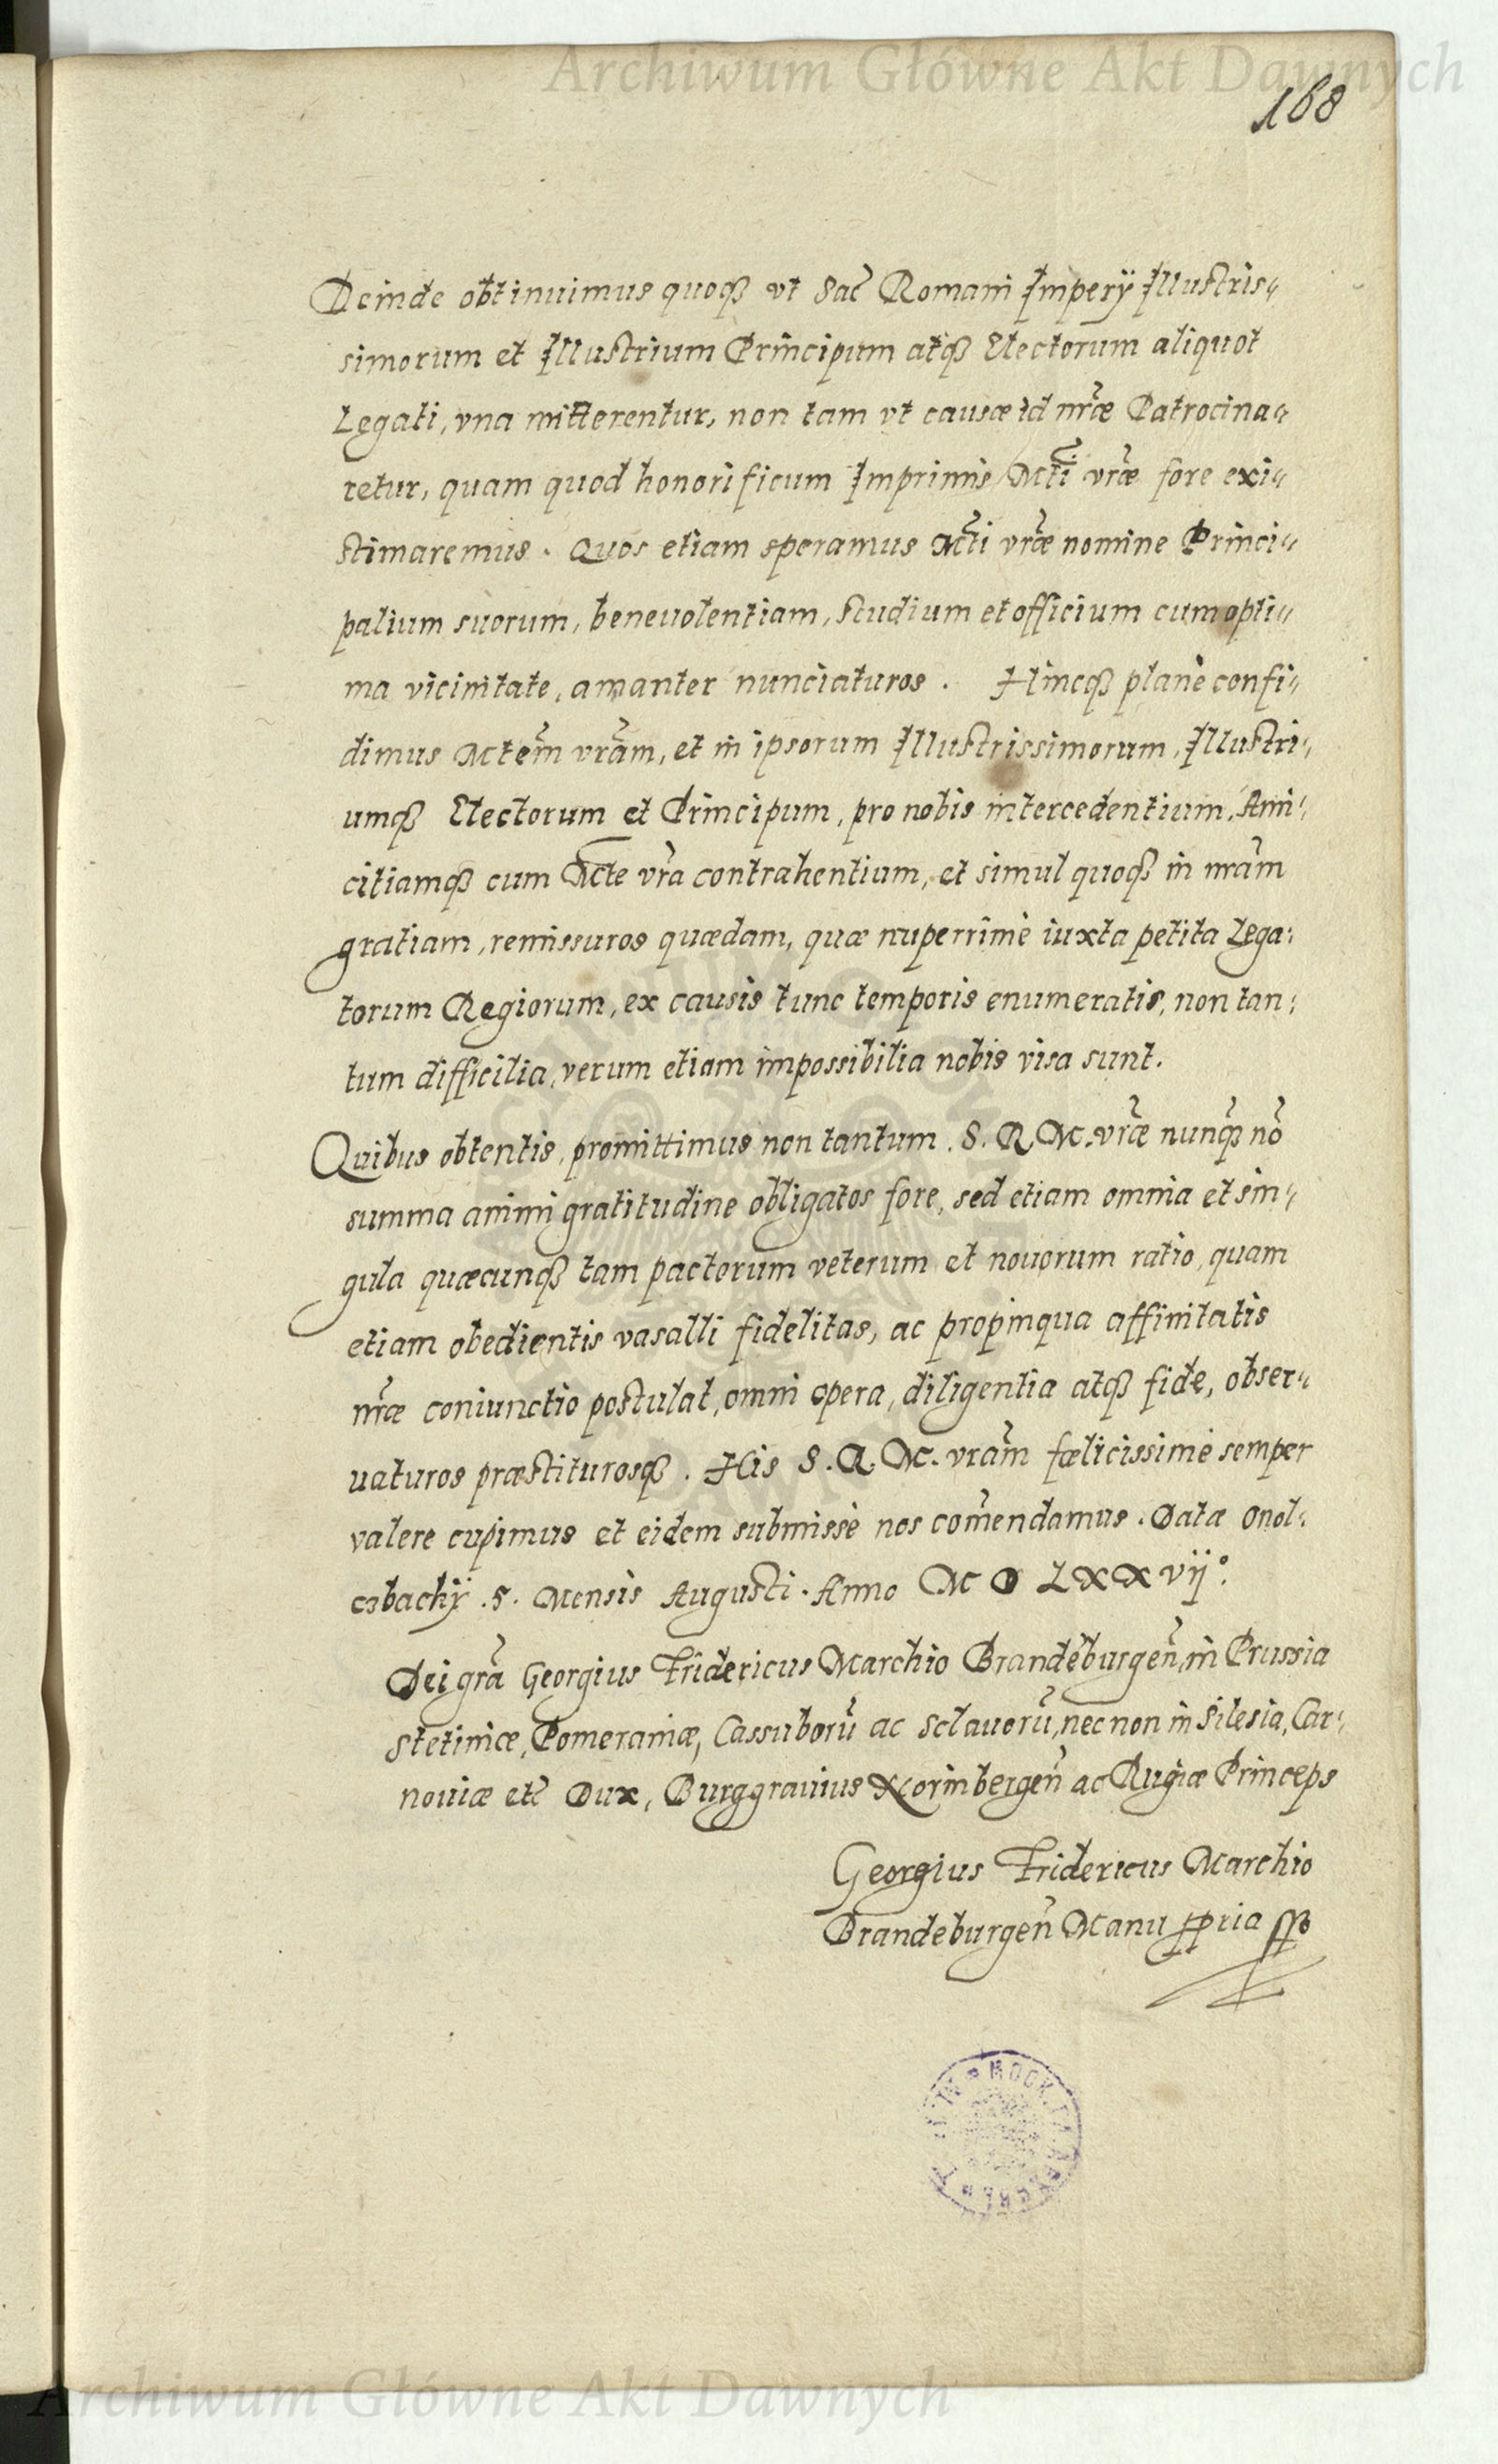 Archiwum Główne Akt Dawnych
168
Deinde obtinuimus quoqꝫ vt Sac̃ Romani Imperÿ Illustris„
simorum et Illustrium Principum atqꝫ Electorum aliquot
Legati, vna mitterentur, non tam vt causæ id nr̃æ Patrocina„
retur, quam quod honorificum Imprimis Mt̃i vr̃æ fore exi„
stimaremus. Quos etiam speramus Mt̃i vr̃æ nomine Princi„
palium suorum, beneuolentiam, studium et officium cum opti„
ma vicinitate, amanter nunciaturos. Hincqꝫ planè confi„
dimus Mtem̃ vrãm, et in ipsorum Illustrissimorum, Illustri„
umqꝫ Electorum et Principum, pro nobis intercedentium, Ami„
citiamqꝫ cum Mte vr̃a contrahentium, et simul quoqꝫ in nrãm
gratiam, remissuros quædam, quæ nuperrimè iuxta petita Lega:
torum Regiorum, ex causis tunc temporis enumeratis, non tan:
tum difficilia, verum etiam impossibilia nobis visa sunt.
Quibus obtentis, promittimus non tantum. S. R. M. vr̃æ nunqꝫ nõ
summa animi gratitudine obligatos fore, sed etiam omnia et sin„
gula quæcunqꝫ tam pactorum veterum et nouorum ratio, quam
etiam obedientis vasalli fidelitas, ac propinqua affinitatis
nr̃æ coniunctio postulat, omni opera, diligentia atqꝫ fide, obser„
uaturos præstiturosqꝫ. His S. R. M. vrãm fœlicissimè semper
valere cupimus et eidem submissè nos com̃endamus. Datæ Onol:
cobachÿ .5. Mensis Augusti. Anno M D LXXvij°.
Dei grã Georgius Fridericus Marchio Brandeburgeñ, in Prussia
Stetinicæ, Pomeraniæ, Cassuborũ ac Sclauorũ, nec non in Silesia, Car:
nouiæ etc̃ Dux, Burggrauius Norinbergeñ ac Rugiæ Princeps
Georgius Fridericus Marchio
Brandeburgeñ Manu ꝓpria sst
Archiwum Główne Akt Dawnych